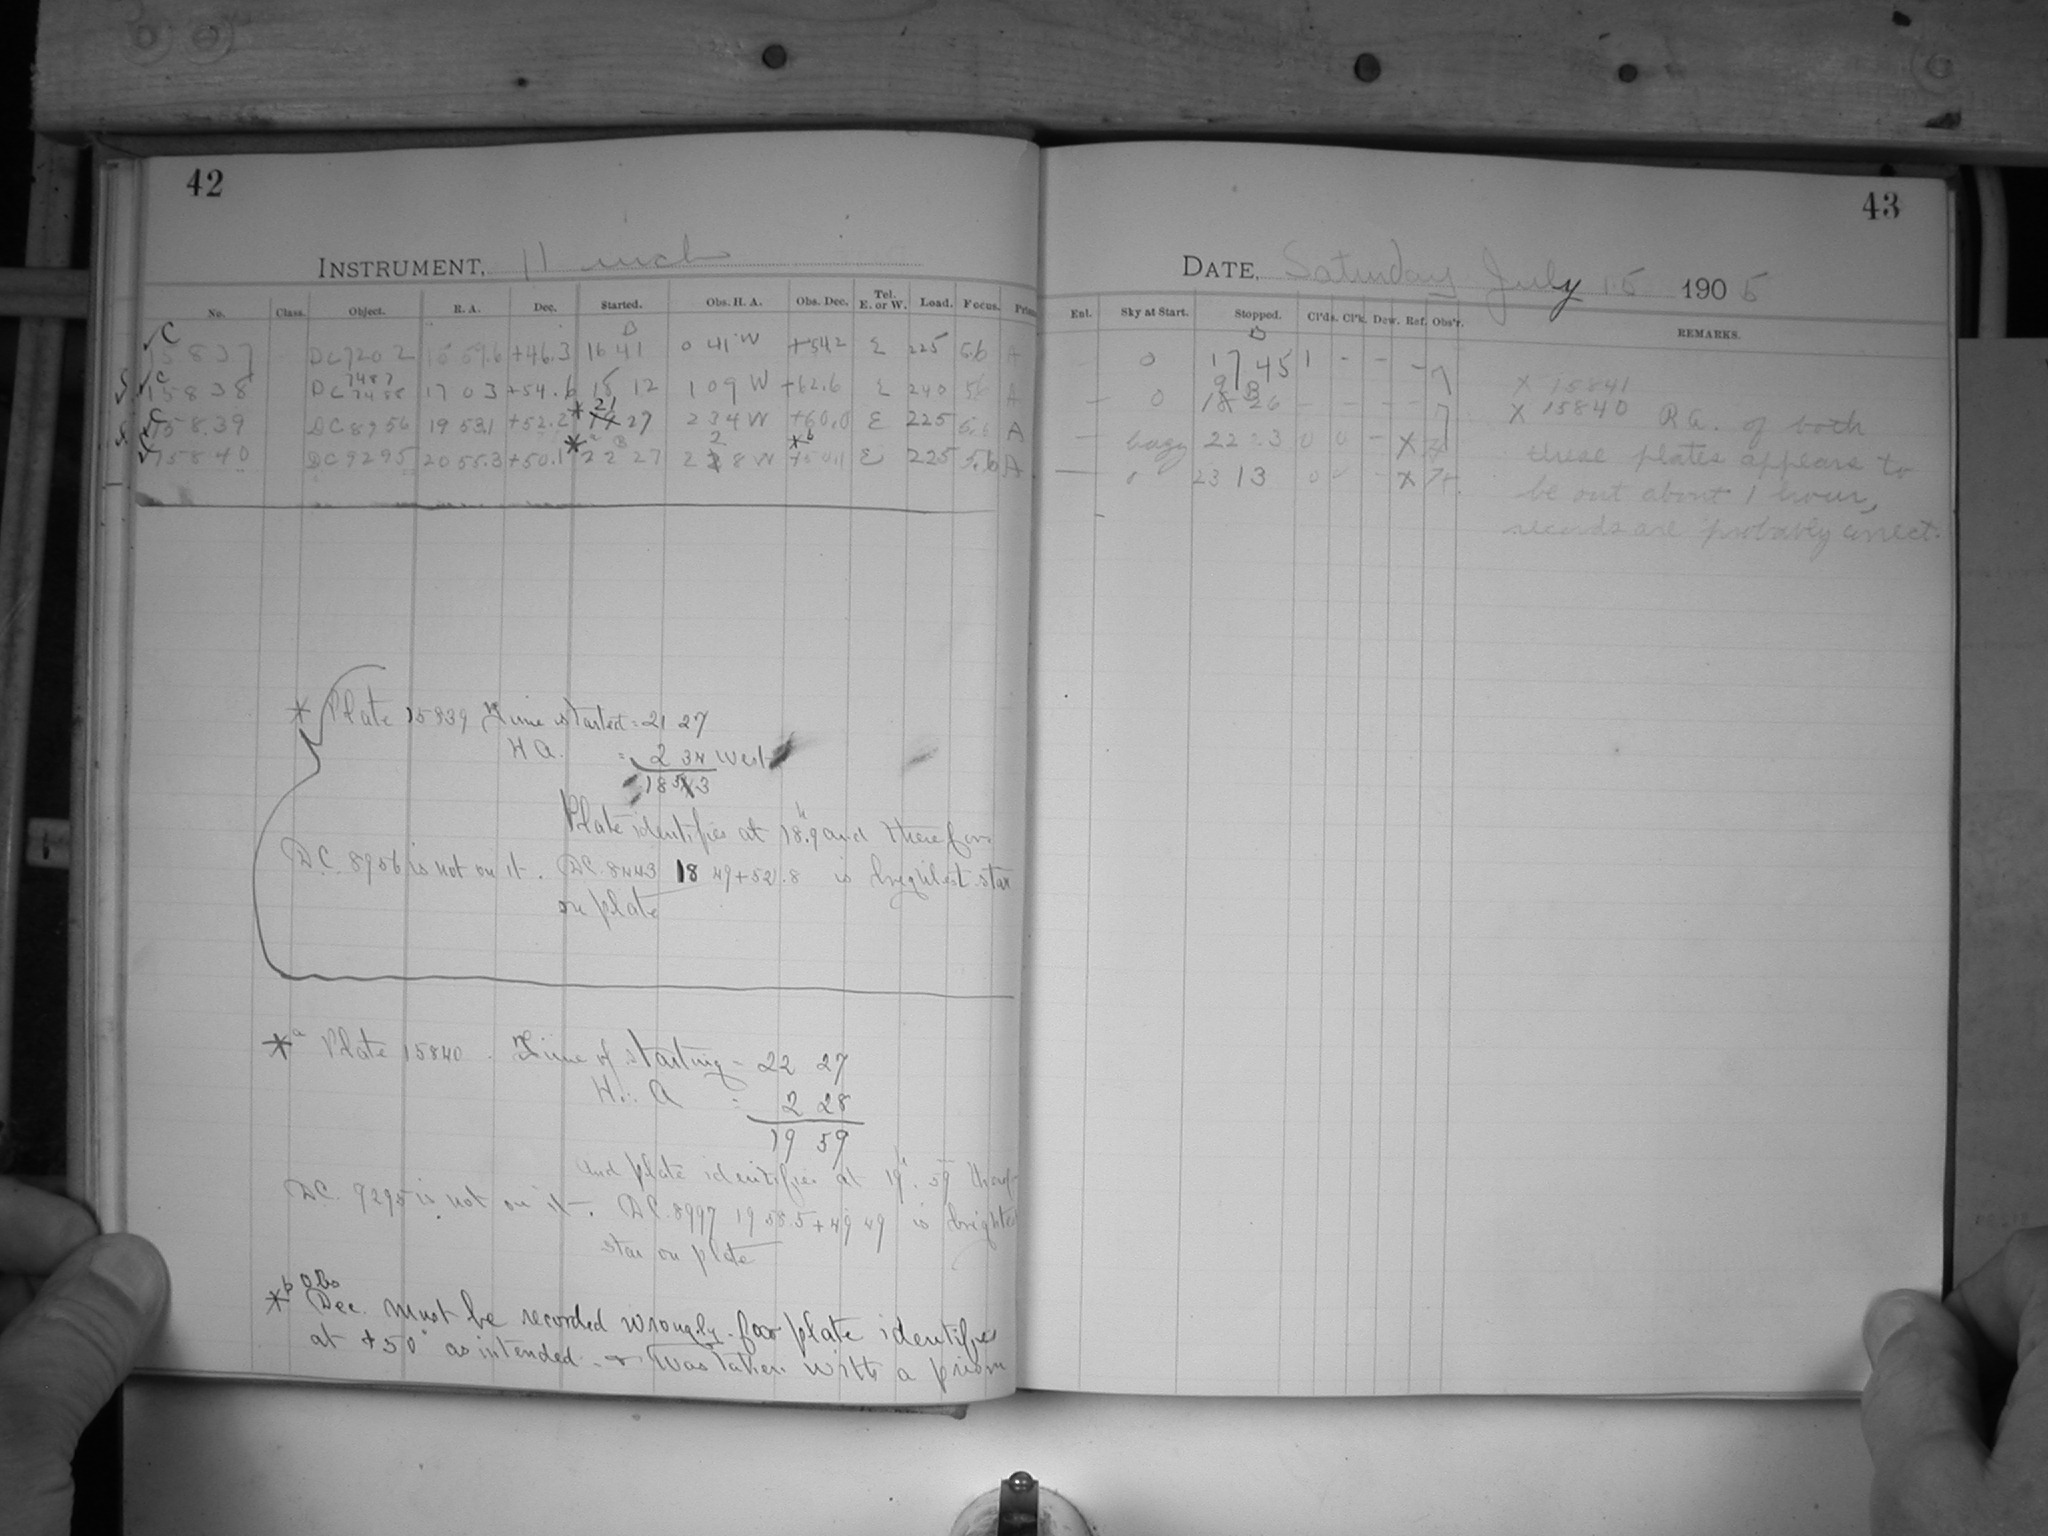 42
INSTRUMENT, 11 inch
No. Class. Object. R. A. Dec. Started. Obs. H. A. Obs. Dec. Tel. E. or W. Load. Focus.
C 15837 DC 7202 +46.3 16 41 0 41 W +54.2 E 225 5.6 A
C 15838 DC 7487 7488 17 03 +54.6 12 1 09 W +62.6 E 240 56 A
C 15839 DC 8956 19 53.1 +52.2 * 21 27 2 34 W +60.0 E 225 5.6 A
15840 DC 9295 20 55.3 +50.1 *a 22 27 2 28 W *b E 225 5.6 A
* Plate 15839 Time started = 21 27
H A. = 2 34 West
18 53
Plate identifies at 18h.9 and therefore
DC. 8956 is not on it. DC. 8443 18 49 +52.8 is brightest star
on plate
*a Plate 15840. Time of starting = 22 27
H. A = 2 28
19 59
and plate identifies at 19h. 59
DC. 9295 is not on it. DC. 8997 19 58.5 +49 49 is
star on plate
*b Obs
Dec. must be recorded wrongly for plate identifies
at +50° as intended & was taken with a prism
43
DATE, Saturday July 15 1905
Enl. Sky at Start. Stopped. Cl'ds. Cl'k. Dew. Ref. Obs'r. REMARKS.
0 17 45 1 - - -
- 0 26
- hazy 22 23 0 0 - X
23 13 0 - X
X 15841
X 15840 R.A. of both
these plates appears to
be out about 1 hour,
records are probably correct.